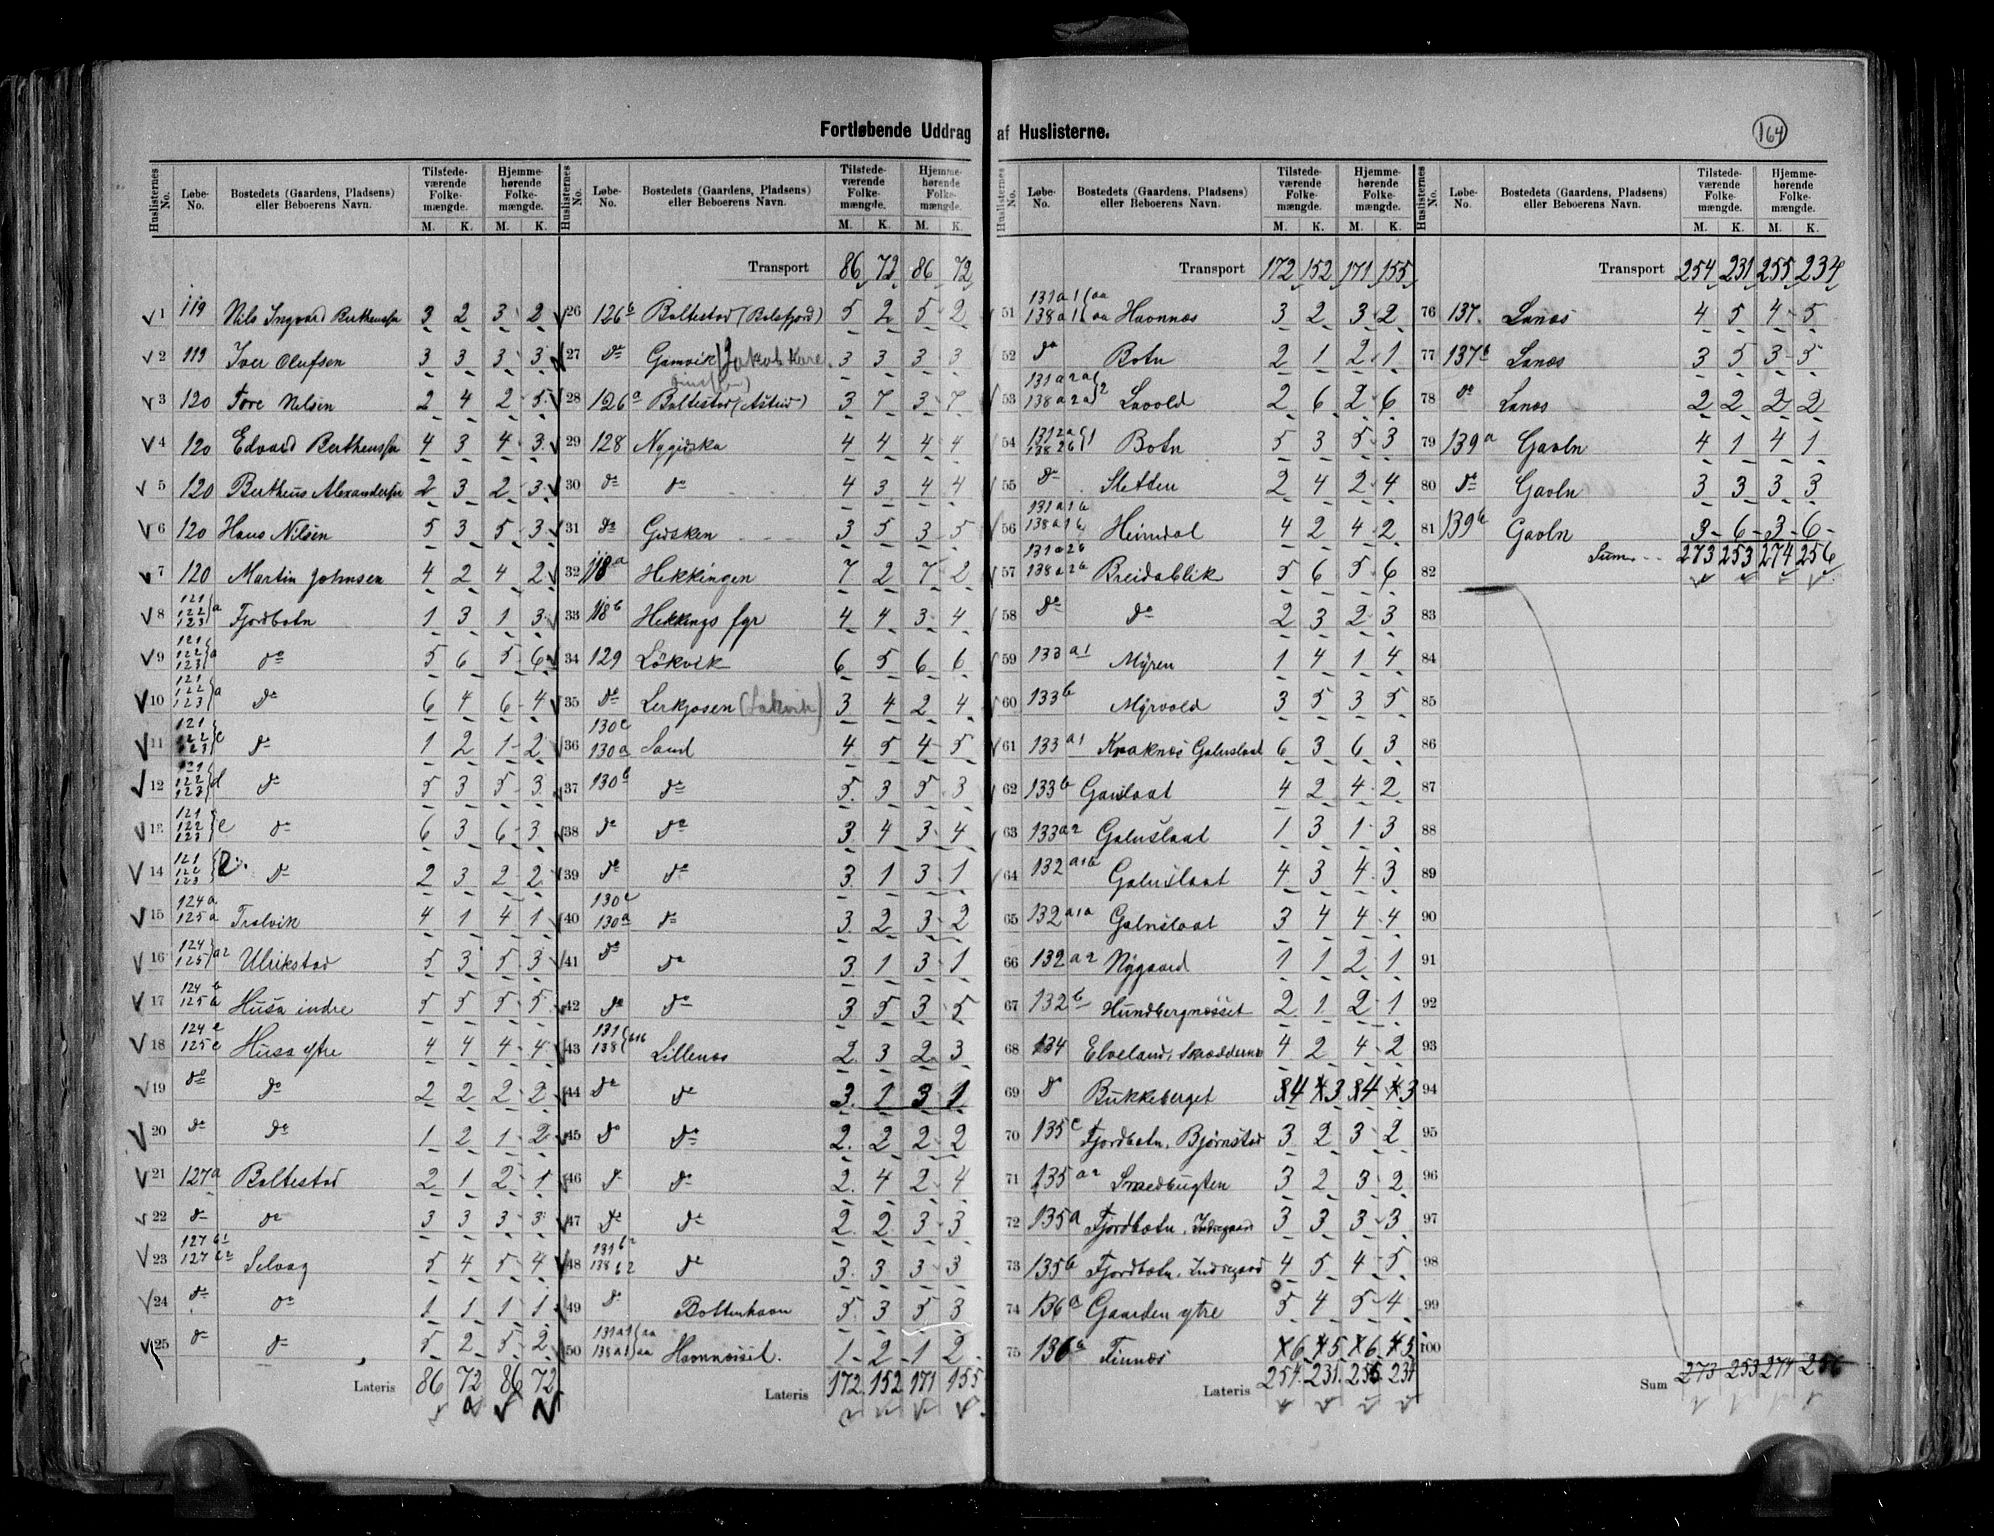 Fortløbende Uddrag af Huslisterne.
164
Huslisternes No. Løbe-No. Bostedets (Gaardens, Pladsens) eller Beboerens Navn. Tilstedeværende Folkemængde. M. K. Hjemmehørende Folkemængde. M. K.
1 119 Nils Ingvard 3 2 3 2
2 119 Iver Olufsen 3 3 3 3
3 120 Tore Nilsen 2 4 2 5
4 120 Edvard 4 3 4 3
5 120 Bertheus 2 3 2 3
6 120 Hans Nilsen 5 3 5 3
7 120 Martin Johnsen 4 2 4 2
8 121 122 123 a Fjordbotn 1 3 1 3
9 121 122 123 a do 5 6 5 6
10 121 122 123 a do 6 4 6 4
11 121 122 123 c do 1 2 1 2
12 121 122 123 d do 5 3 5 3
13 121 122 123 e do 6 3 6 3
14 121 122 123 do 2 3 2 2
15 124a 125a Trolvik 4 1 4 1
16 124 125 a2 Ulrikstad 5 3 5 3
17 124b 125b Husa indre 5 5 5 5
18 124c 125c Husa ytre 4 4 4 4
19 do do 2 2 2 2
20 do do 1 2 1 2
21 127a Baltestad 2 1 2 1
22 do do 3 3 3 3
23 127b1 127b2 Selvag 5 4 5 4
24 do do 1 1 1 1
25 do do 5 2 5 2
Lateris 86 72 86 72
Huslisternes No. Løbe-No. Bostedets (Gaardens, Pladsens) eller Beboerens Navn. Tilstedeværende Folkemængde. M. K. Hjemmehørende Folkemængde. M. K.
Transport 86 72 86 72
26 126b Baltestad (Balsfjord) 5 2 5 2
27 do Gamvik 3 3 3 3
28 126a Baltestad 3 7 3 7
29 128 Nygidska 4 4 4 4
30 do do 4 3 4 4
31 do Gidsken 3 5 3 5
32 118a Hekkingen 7 2 7 2
33 118b Hekkings fyr 4 4 3 4
34 129 Lökvik 6 5 6 6
35 do Lerkjosen (Løkvik) 3 4 2 4
36 130c 130a Sand 4 5 4 5
37 130b do 5 3 5 3
38 do do 3 4 3 4
39 do do 3 1 3 1
40 130c 130a do 3 2 3 2
41 do do 3 1 3 1
42 do do 3 5 3 5
43 131 138 b1b Lillenes 2 3 2 3
44 do do 3 1 3 1
45 do do 2 2 2 2
46 do do 2 4 2 4
47 do do 2 2 3 3
48 131b2 138b2 do 3 3 3 3
49 do Bottenhavn 5 3 5 3
50 131a1 138a1 aa Havnnesset 1 2 1 2
Lateris 172 152 171 155
Huslisternes No. Løbe-No. Bostedets (Gaardens, Pladsens) eller Beboerens Navn. Tilstedeværende Folkemængde. M. K. Hjemmehørende Folkemængde. M. K.
Transport 172 152 171 155
51 131a1 138a1 aa Havnnæs 3 2 3 2
52 do Botn 2 1 2 1
53 131a2a 138a2a 2 Lavold 2 6 2 6
54 Botn 5 3 5 3
55 do Sletten 2 4 2 4
56 131a1b 138a1b Heimdal 4 2 4 2
57 131a2b 138a2b Breidablik 5 6 5 6
58 do do 2 3 2 3
59 133a1 Myren 1 4 1 4
60 133b Myrvold 3 5 3 5
61 133a1 Kraknes Galnslaat 6 3 6 3
62 133b Galnslaat 4 2 4 2
63 133a2 Galnslaat 1 3 1 3
64 132a1b Galnslaat 4 3 4 3
65 132a1a Galnslaat 3 4 4 4
66 132a2 Nygaard 1 1 2 1
67 132b Hundbergnesset 2 1 2 1
68 134 Elveland, 4 2 4 2
69 do Bukkeberget 4 3 4 3
70 135c Fjordbotn, Bjørnstad 3 2 3 2
71 135a2 Smedbugten 3 2 3 2
72 135a Fjordbotn, Indregaard 3 3 3 3
73 135b Fjordbotn, Indregaard 4 5 4 5
74 136a Gaarden ytre 5 4 5 4
75 136b Finnæs 6 5 6 5
Lateris 254 231 255 234
Huslisternes No. Løbe-No. Bostedets (Gaardens, Pladsens) eller Beboerens Navn. Tilstedeværende Folkemængde. M. K. Hjemmehørende Folkemængde. M. K.
Transport 254 231 255 234
76 137 Lanes 4 5 4 5
77 137b Lanes 3 5 3 5
78 do Lanes 2 2 2 2
79 139a Gavln 4 1 4 1
80 do Gavln 3 3 3 3
81 139b Gavln 3 6 3 6
Sum 273 253 274 256
82
83
84
85
86
87
88
89
90
91
92
93
94
95
96
97
98
99
100
Sum 273 253 274 256